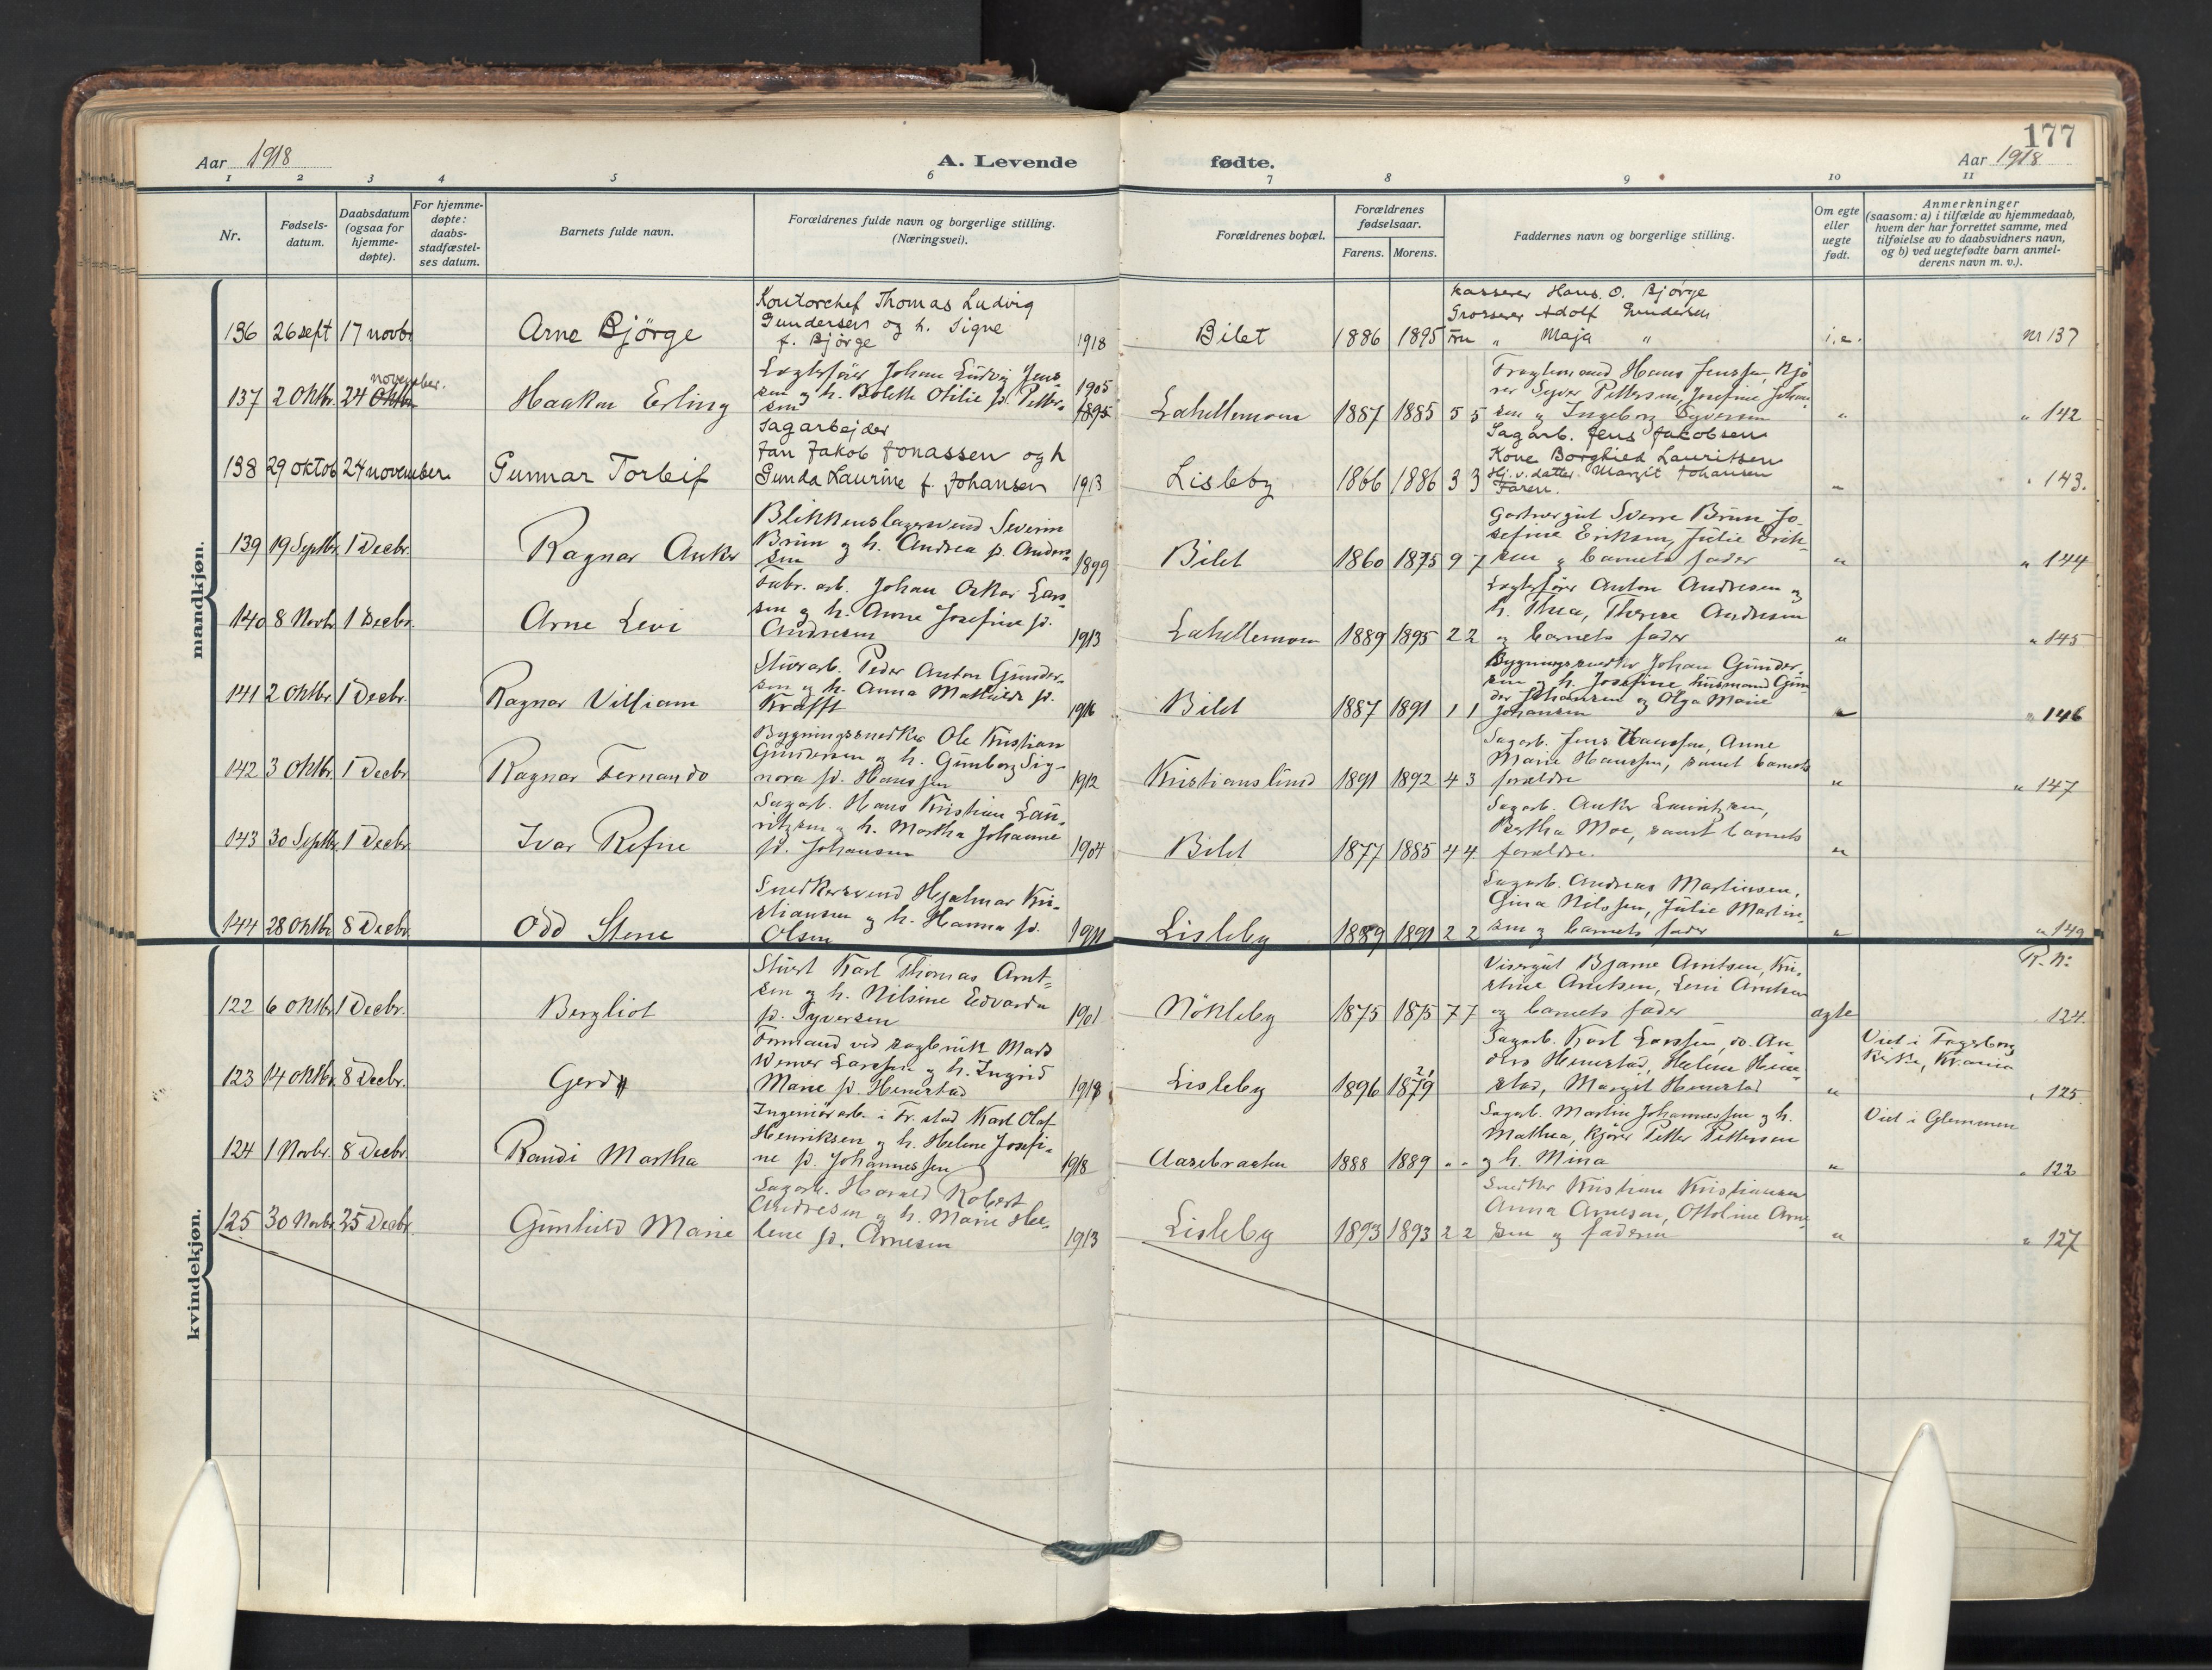 177
Aar 1918
A. Levende
fødte.
Aar 1918
1 2 3 4 5 6 7 8 9 10 11
Nr.
Fødsels-
datum.
Daabsdatum
(ogsaa for
hjemme-
døpte).
For hjemme-
døpte:
daabs-
stadfæstel-
ses datum.
Barnets fulde navn.
Forældrenes fulde navn og borgerlige stilling.
(Næringsvei).
Forældrenes bopæl.
Forældrenes
fødselsaar.
Farens. Morens.
Faddernes navn og borgerlige stilling.
Om egte
eller
uegte
født.
Anmerkninger
(saasom: a) i tilfælde av hjemmedaab,
hvem der har forrettet samme, med
tilføielse av to daabsvidners navn,
og b) ved uegtefødte barn anmel-
derens navn m. v.).
mandkjøn.
136 26 sept 17 novbr Arne Bjørge
Kontorchef Thomas Ludvig
Gundersen og h. Signe
f. Bjørge 1918
Bilet 1886 1895
Kasserer Hans O. Bjørge
Grosserer Adolf Gundersen
Fru " Maja "
i. e. nr 137
november.
137 2 Oktbr. 24 Oktbr Haakon Erling
Lagterfører Johan Ludvig Jens-
sen og h. Bolette Otilie f. Petter-
sen 1905 1895
Lahellemoen 1887 1885 5 5
Fragtemand Hans Jenssen, Kjø
rer Syver Pettersen, Josefine Johan-
sen og Ingeborg Syversen
" " 142
138 29 oktob 24 november Gunnar Torleif
Sagarbejder
Jan Jakob Jonassen og h
Gunda Laurine f. Johansen 1913
Lisleby 1866 1886 3 3
Sagarb. Jens Jacobsen
Kone Borghild Lauritsen
Hj. v. datter. Margit Johansen
Faren.
" " 143.
139 19 Septbr. 1 Decbr. Ragnar Anker
Blikkenslagersvend Severin
Brun og h. Andrea f. Anders-
sen 1899
Bilet 1860 1875 9 7
Gartnergut Sverre Brun Jo-
sefine Eriksen, Julie Erik-
sen og barnets fader
" " 144
140 8 Novbr. 1 Decbr. Arne Levi
Fabr. arb. Johan Oskar Lars-
sen og h. Anne Josefine f.
Andresen 1913
Lahellemoen 1889 1895 2 2
Lagterfører Anton Andresen og
h. Thea, Therese Andresen
og barnets fader
" " 145
141 2 Oktbr. 1 Decbr. Ragnar Villiam
Stuerarb. Peder Anton Gunder-
sen og h. Anna Mathilde f.
Krafft 1916
Bilet 1887 1891 1 1
Bygningssnedker Johan Gunder-
sen og h. Josefine husmand Gun
der Johansen og Olga Marie
Johansen
" " 146
142 3 Oktbr. 1 Decbr Ragnar Fernando
Bygningssnedker Ole Kristian
Gundersen og h. Gunborg Sig-
nora f. Hanssen 1912
Kristianslund 1891 1892 4 3
Sagarb. Jens Hanssen, Anne
Marie Hanssen, samt barnets
forældre
" " 147
143 30 Septbr. 1 Decbr Ivar Refne
Sagarb. Hans Kristian Lau-
ritzen og h. Martha Johanne
f. Johansen 1904
Bilet 1877 1885 4 4
Sagarb. Anker Lauritzen,
Bertha Moe, samt barnets
forældre.
"
144 28 Oktbr 8 Decbr. Odd Stene
Snedkersvend Hjalmar Kri-
stiansen og h. Hanna f.
Olsen 1911
Lisleby 1889 1891 2 2
Sagarb. Andreas Martinsen,
Gina Nilssen, Julie Martin-
sen og barnets fader
" " 149
kvindekjøn.
R. Nr.
122 6 Oktbr 1 Decbr. Bergliot
Stuert Karl Thomas Arnt-
sen og h. Nilsine Edvarda
f. Syversen 1901
Nökleby 1875 1875 7 7
Visergut Bjarne Arntsen, Kri-
stine Arntsen, Leni Arntsen
og barnets fader
egte 124.
123 14 Oktbr. 8 Decbr. Gerd
Formand ved sagbruk Mads
Werner Larssen og h. Ingrid
Marie f. Hemstad 1918
Lisleby 1896 1879
Sagarb. Karl Larssen, do. An
ders Hemstad, Helene Hem-
stad, Margit Hemstad
"
Viet i Fagerborg
Kirke, Krania
" 125.
124 1 Novbr. 8 Decbr. Randi Martha
Ingeniørarb. i Fr. stad Karl Olaf
Henriksen og h. Helene Josefi-
ne f. Johannessen 1918
Aasebraaten 1888 1889 " "
Sagarb. Martin Johannessen og h.
Mathea, Kjører Petter Pettersen
og h. Mina
"
Viet i Glemmen
" 122
125 30 Novbr 25 Decbr. Gunhild Marie
Sagarb. Harald Robert
Andresen og h. Marie He-
lene f. Arnesen 1913
Lisleby 1893 1893 2 2
Snedker Kristian Kristiansen
Anna Arnesen, Ottoline Arne-
sen og faderen
" " 127